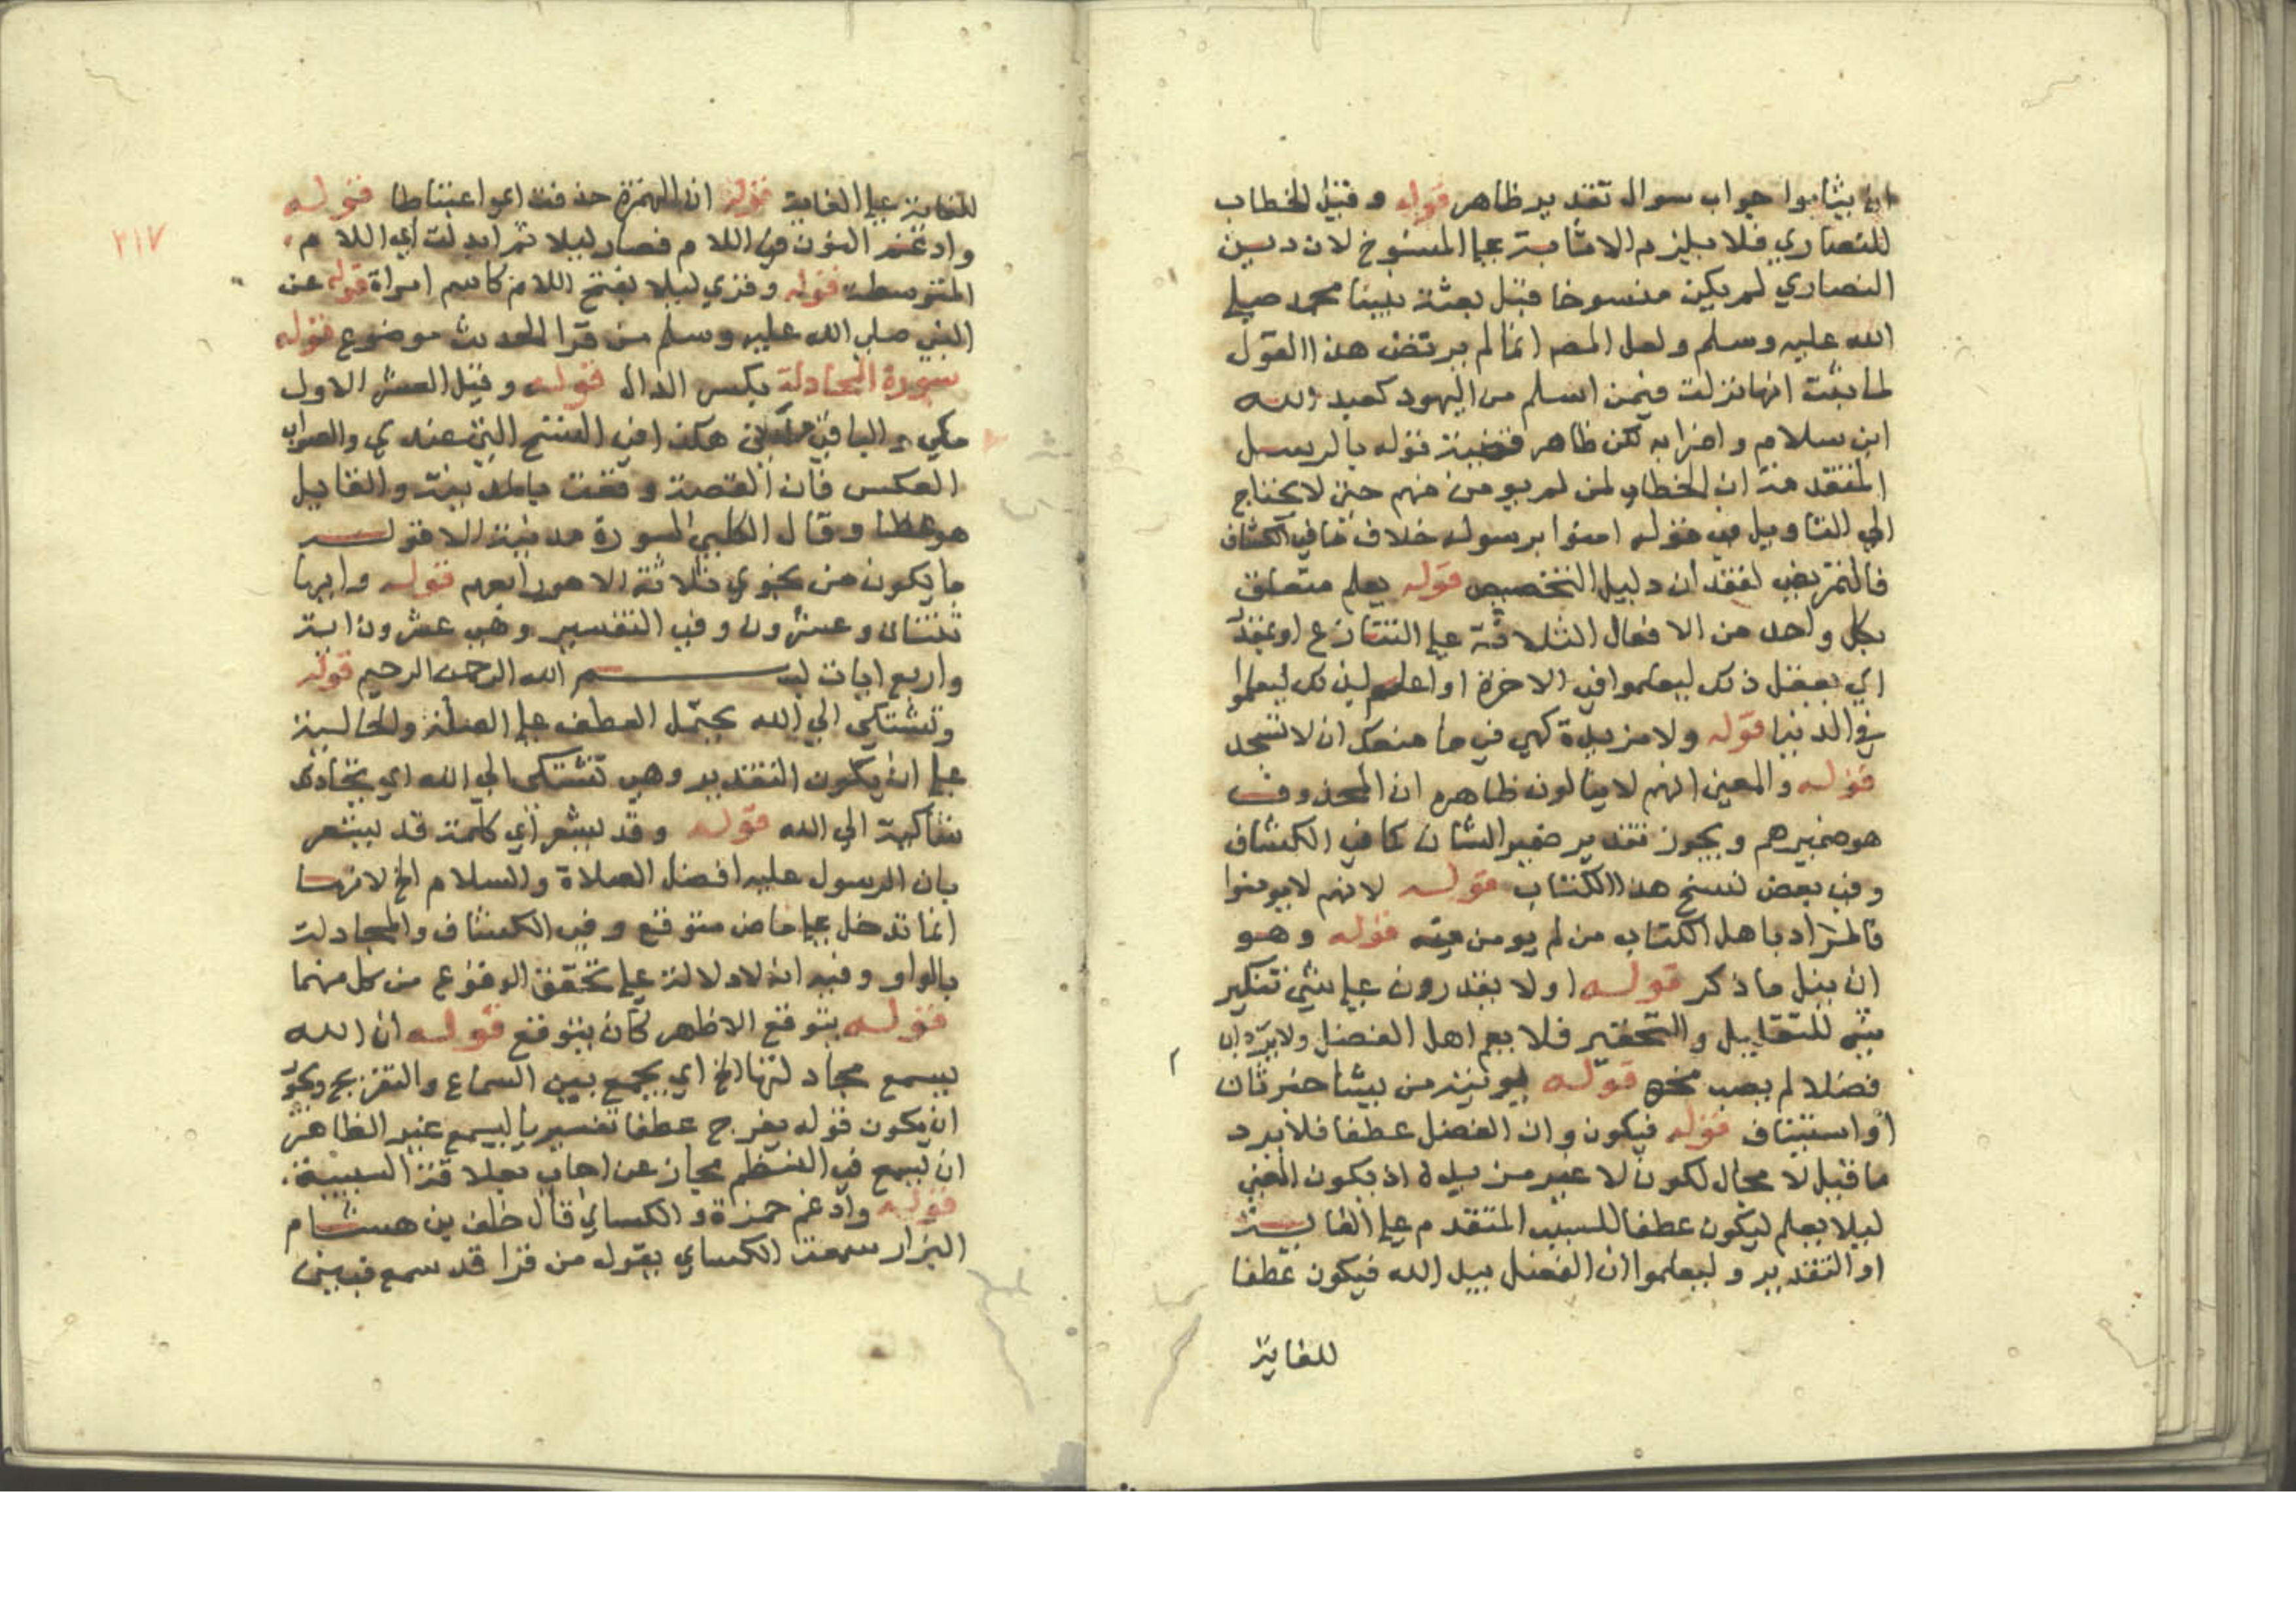 ان يثابوا جواب سوال تقديره ظاهر قوله وقيل الخطاب
للنصاري فلا يلزم الاثابة علي المنسوخ لان دين
النصاري لم يكن منسوخا قبل بعثة نبينا محمد صلي
الله عليه وسلم ولعل المصه انما لم يرتض هذا القول
لما ثبت انها نزلت فيمن اسلم من اليهود كعبد الله
ابن سلام واضرابه لكن ظاهر قوله يا لرسل
المتقدمة ان الخطاب لمن لم يومن منهم حتي لا يحتاج
الي التاويل في قوله امنوا برسوله خلاف ما في الكشاف
فالتمريض لفقدان دليل التخصيص قوله يعلم متعلق
بكل واحد من الافعال الثلاثة علي التنازع او بمقدر
اي يفعل ذلك ليعلموا في الاخرة او اعلم بذلك ليعلموا
في الدنيا قوله ولا مزيدة كهي في ما منعك ان لا تسجد
قوله والمعني انهم لا ينالون ظاهره ان المحذوف
هو ضميرهم ويجوز تقدير ضمير الشان كما في الكشاف
وفي بعض نسخ هذا الكتاب قوله لانهم لا يومنوا
فالمراد باهل الكتاب من لم يومن منه قوله وهو
ان ينل ما ذكر قوله اولا يقدرون علي شي تنكير
شي للتقليل والتحقير فلا يعم اهل الفضل ولا يرد ان
فضلا لم يصب قوله يوتيه من يشا خبر ثان
او استيناف قوله فيكون وان الفضل عطفا فلا يرد
ما قيل لا مجال لكون لا غير مزيدة اذ يكون المعني
ليلا يعلم ليكون عطفا للسبب المتقدم علي الغاية
او التقدير وليعلموا ان الفضل بيد الله فيكون عطفا
للغاية
٢١٧
للغاية علي الغاية قوله ان الهمزة حذفت اعوا عتباطا قوله
وادغم النون في اللام فصار ليلا ثم ابدلت اي اللام
المتوسطة قوله وقري ليلا بفتح اللام كاسم امراة قوله عن
النبي صلي الله عليه وسلم من قرا الحديث موضوع قوله
سورة المجادلة بكسر الدال قوله وقيل العشر الاول
مكي والباقي مدني هكذا في النسخ التي عندي والصواب
العكس فان القصة وقعت بالمدينة والقايل
هو عطا وقال الكلبي السورة مدنية الا قوله
ما يكون من نجوي ثلاثة الا هو رابعهم قوله وايها
ثنتان وعشرون وفي التفسير وهي عشرون اية
واربع ايات بسم الله الرحمن الرحيم قوله
وتشتكي الي الله يحتمل العطف علي الصلة والحالية
علي ان يكون التقدير وهي تشتكي الي الله اي تجادل
شاكية الي الله قوله وقد يشعر اي كلمة قد يشعر
بان الرسول عليه افضل الصلاة والسلام الخ لانها
انما تدخل علي ماض متوقع وفي الكشاف والمجادلة
بالواو وفيه انه لا دلالة علي تحقق الوقوع من كل منهما
قوله يتوقع الاظهر كان يتوقع قوله ان الله
يسمع مجادلتها الخ اي يجمع بين السماع والتفريج ويجوز
ان يكون قوله يفرج عطفا تفسيريا ليسمع غير الظاهر
ان يسمع في النظم مجاز عن اجاب بعلاقة السببية
قوله وادغم حمزة والكساي قال خلف بن هشام
البزار سمعت الكساي يقول من قرا قد سمع فبين